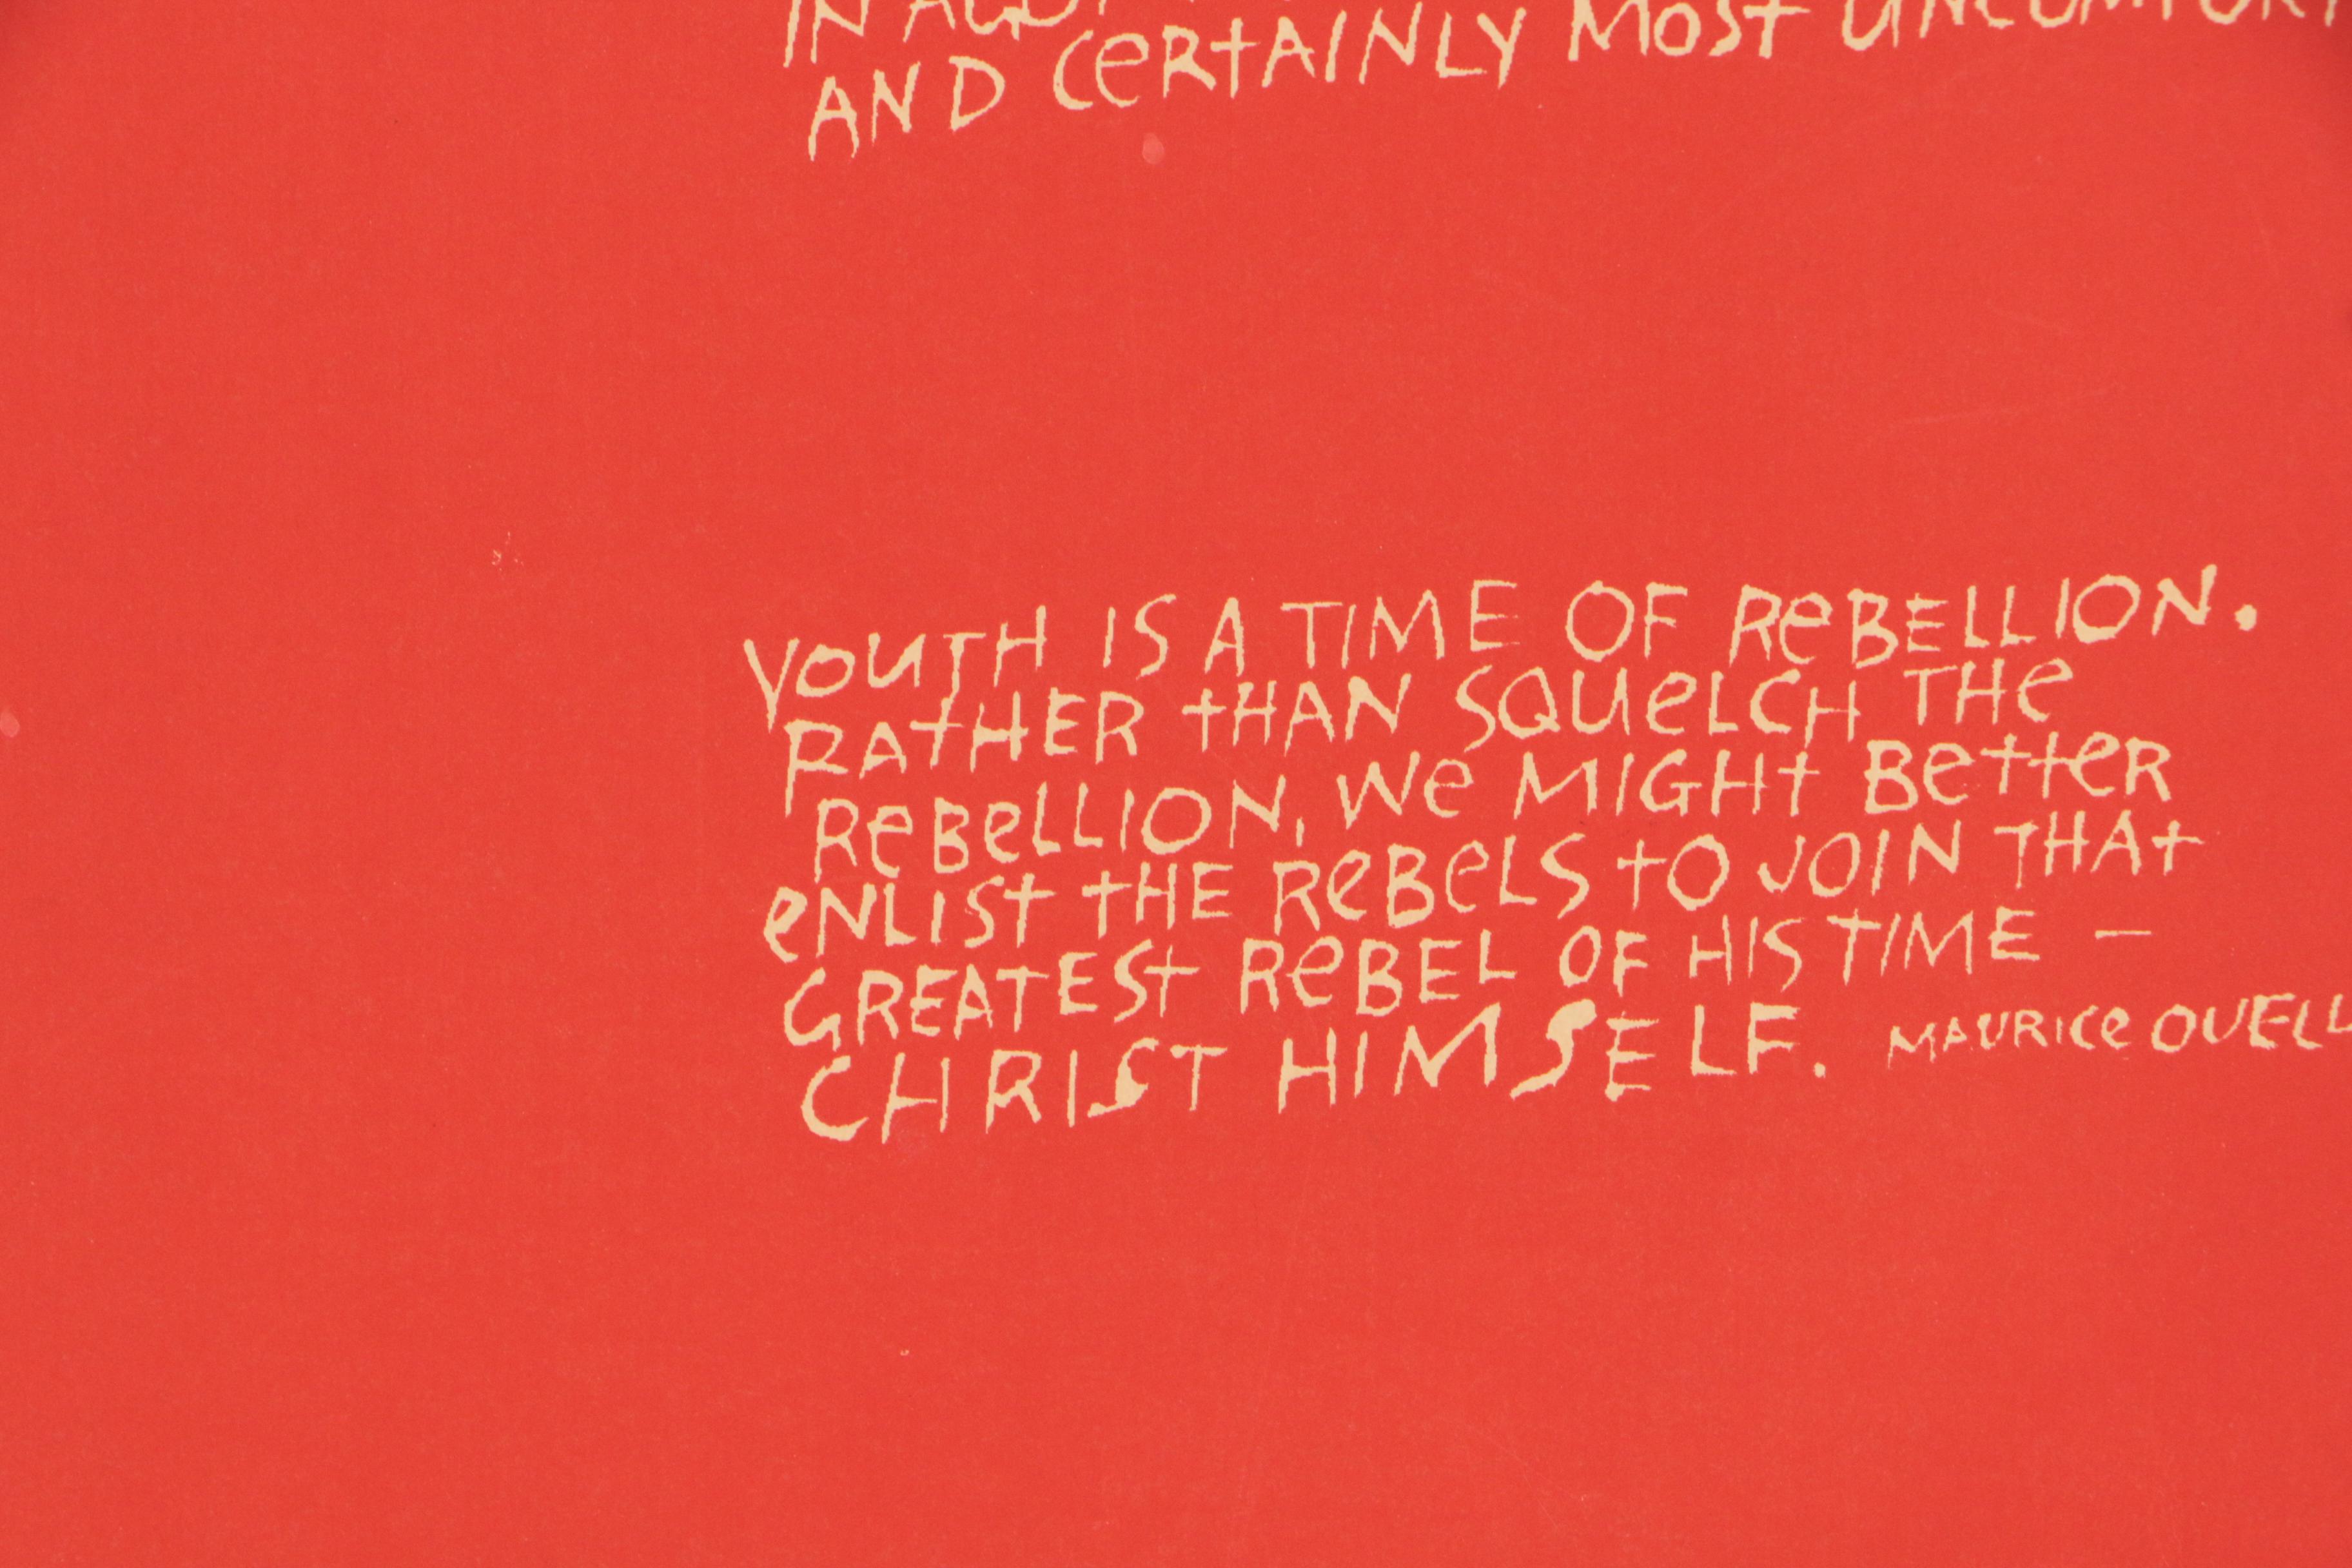 IN
AND CERTAINLY MOST
YOUTH IS A TIME OF REBELLION.
RATHER THAN SQUELCH THE
REBELLION, WE MIGHT BETTER
ENLIST THE REBELS TO JOIN THAT
GREATEST REBEL OF HIS TIME —
CHRIST HIMSELF. MAURICE OUELL